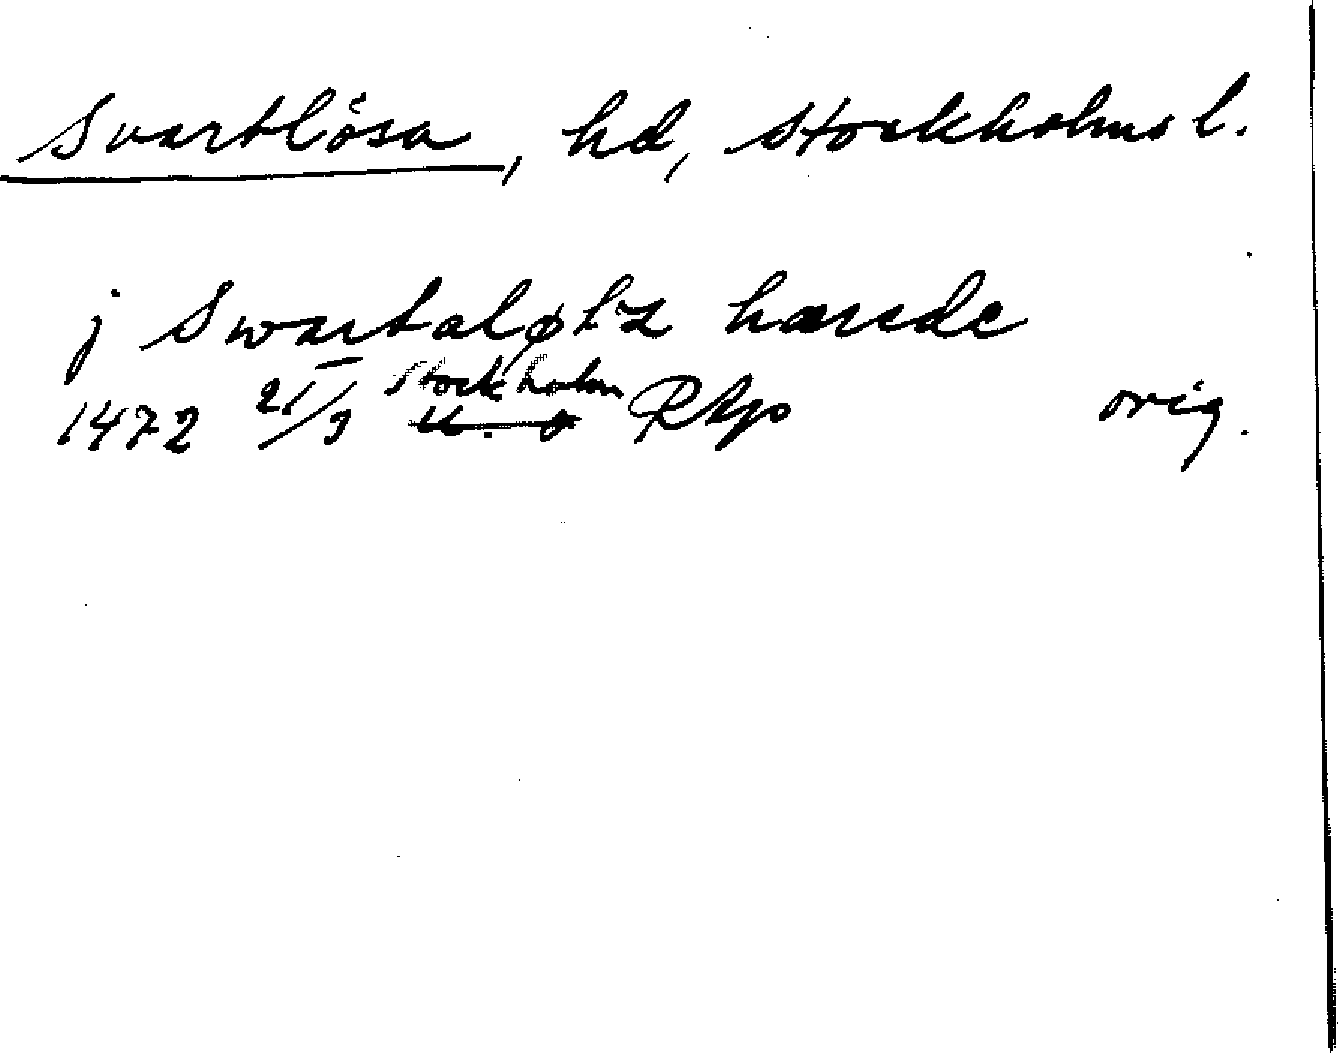 Svartlösa, hd, Stockholms l.
j Swartaløtz hærede
1472 21/9 Stockholm U. o RAp orig.